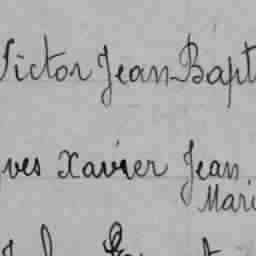 Victor Jean-Bapt
ves Xavier Jean
Mari